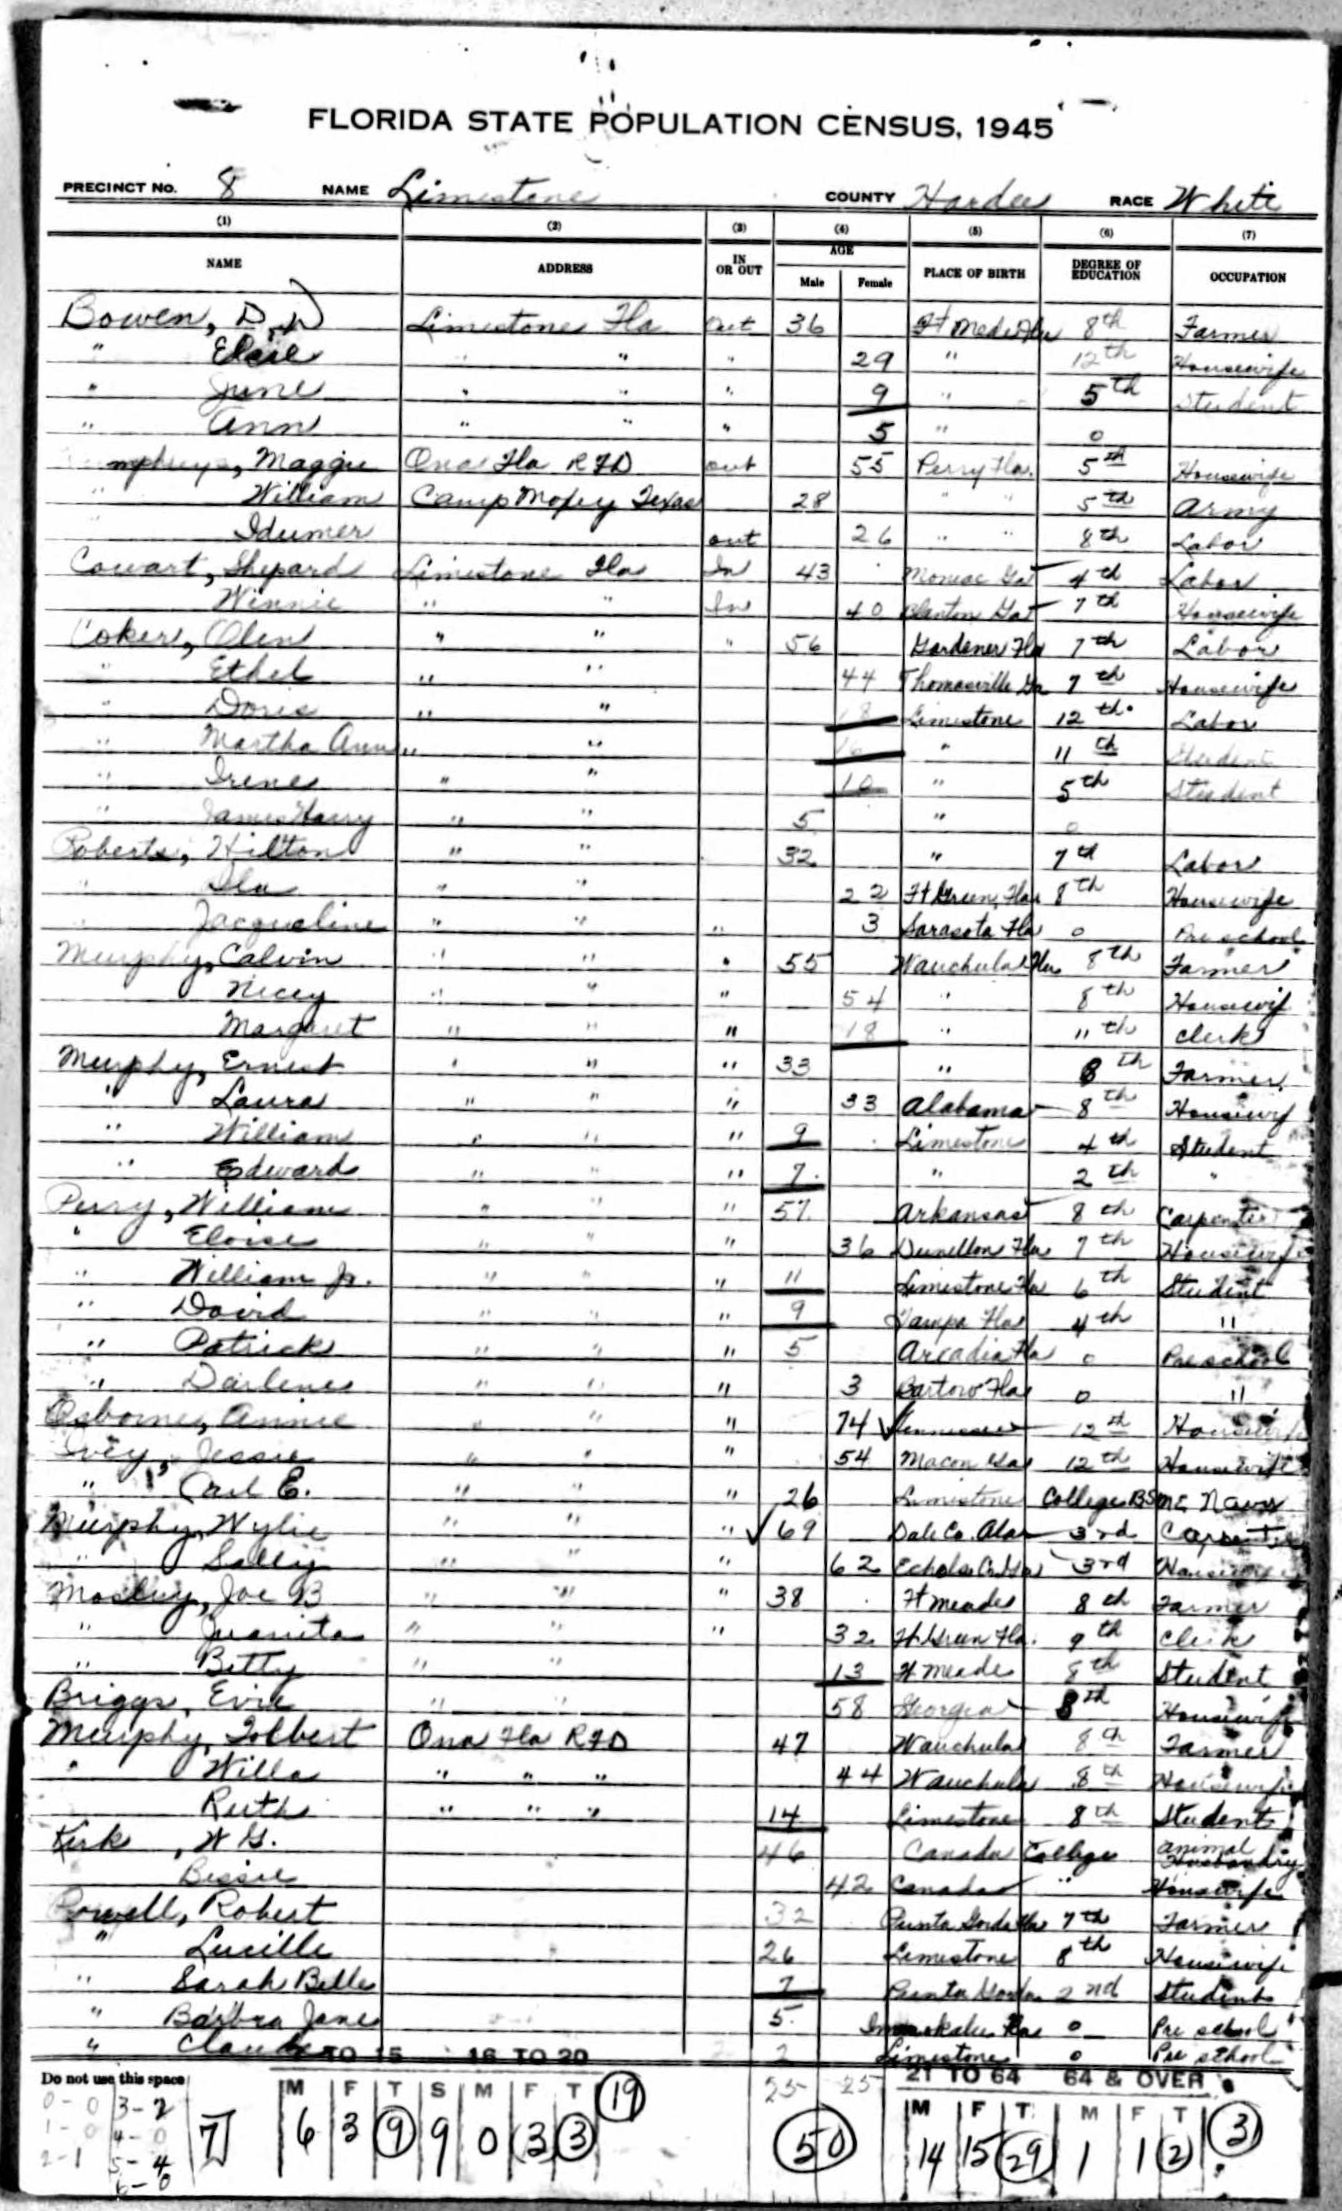 FLORIDA STATE POPULATION CENSUS, 1945
PRECINCT No. 8 NAME Limestone COUNTY Hardee RACE White
(1) (2) (3) (4) (5) (6) (7)
NAME ADDRESS IN OR OUT AGE Male Female PLACE OF BIRTH DEGREE OF EDUCATION OCCUPATION
Bowen, D. Limestone Fla Out 36 Ft Mede Fla 8th Farmer
" Elsie " " " 29 " 12th Housewife
" June " " " 9 " 5th Student
" Ann " " " 5 " 0
mphreys, Maggie Ona Fla RFD out 55 Perry Fla. 5th Housewife
" William Camp Mopey Texas 28 " " 5th Army
" Idumer out 26 " " 8th Labor
Cowart, Shepard Limestone Fla In 43 Moniac Ga 4th Labor
Winnie " " In 40 Clinton Ga 7th Housewife
Coker, Olen " " " 56 Gardener Fla 7th Labor
" Ethel " " 44 Thomasville Ga 7th Housewife
" Doris " " 18 Limestone 12th Labor
" Martha Ann " " 16 " 11th Student
" Irene " " 10 " 5th Student
" James Harry " " 5 " 0
Roberts, Hilton " " 32 " 7th Labor
" Ila " " 22 Ft Green, Fla 8th Housewife
" Jacqueline " " " 3 Sarasota Fla 0 Pre school
Murphy, Calvin " " " 55 Wauchula Fla 8th Farmer
Nicey " " " 54 " 8th Housewif
Margaret " " " 18 " 11th Clerk
Murphy, Ernest " " " 33 " 8th Farmer
" Laura " " " 33 Alabama 8th Housewif
" William " " " 9 Limestone 4th Student
" Edward " " " 7 " 2th "
Perry, William " " " 57 Arkansas 8th Carpenter
" Eloise " " " 36 Dunellon Fla 7th Housewife
" William Jr. " " " 11 Limestone Fla 6th Student
" David " " " 9 Tampa Fla 4th "
" Patrick " " " 5 Arcadia Fla 0 Preschool
" Darlene " " " 3 Bartow Fla 0 "
Osborne, Annie " " " 74 Tennessee 12th Housewife
Ivey, Jessie " " " 54 Macon Ga 12th Housewife
" Carl E. " " " 26 Limestone College BS ME Navy
Murphy, Wylie " " " 69 Dale Co. Ala 3rd Carpenter
" Sally " " " 62 Echols Co Ga 3rd Housewife
Mosley, Joe B " " " 38 Ft meade 8th Farmer
" Juanita " " " 32 Ft. Green Fla. 9th Clerk
" Betty " " 13 Ft Meade 8th Student
Briggs, Evie " " 58 Georgia 8th Housewife
Murphy, Tolbert Ona Fla RFD 47 Wauchula 8th Farmer
" Willa " " " 44 Wauchula 8th Housewife
Ruth " " " 14 Limestone 8th Student
Kirk, W G. 46 Canada College animal Husbandry
Bessie 42 Canada " Housewife
Powell, Robert 32 Punta Gorda Fla 7th Farmer
" Lucille 26 Limestone 8th Housewife
" Sarah Belle 7 Punta Gorda 2nd Student
" Barbra Jane 5 Immokalee Fla 0 Pre school
" Claude 2 Limestone 0 Pre school
TO 15 16 TO 20 21 TO 64 64 & OVER
Do not use this space
M F T S M F T 19 25 25 M F T M F T 3
0-0 3-2
1-0 4-0
2-1 5-4
6-0
7 6 3 9 9 0 3 3 50 14 15 29 1 1 2